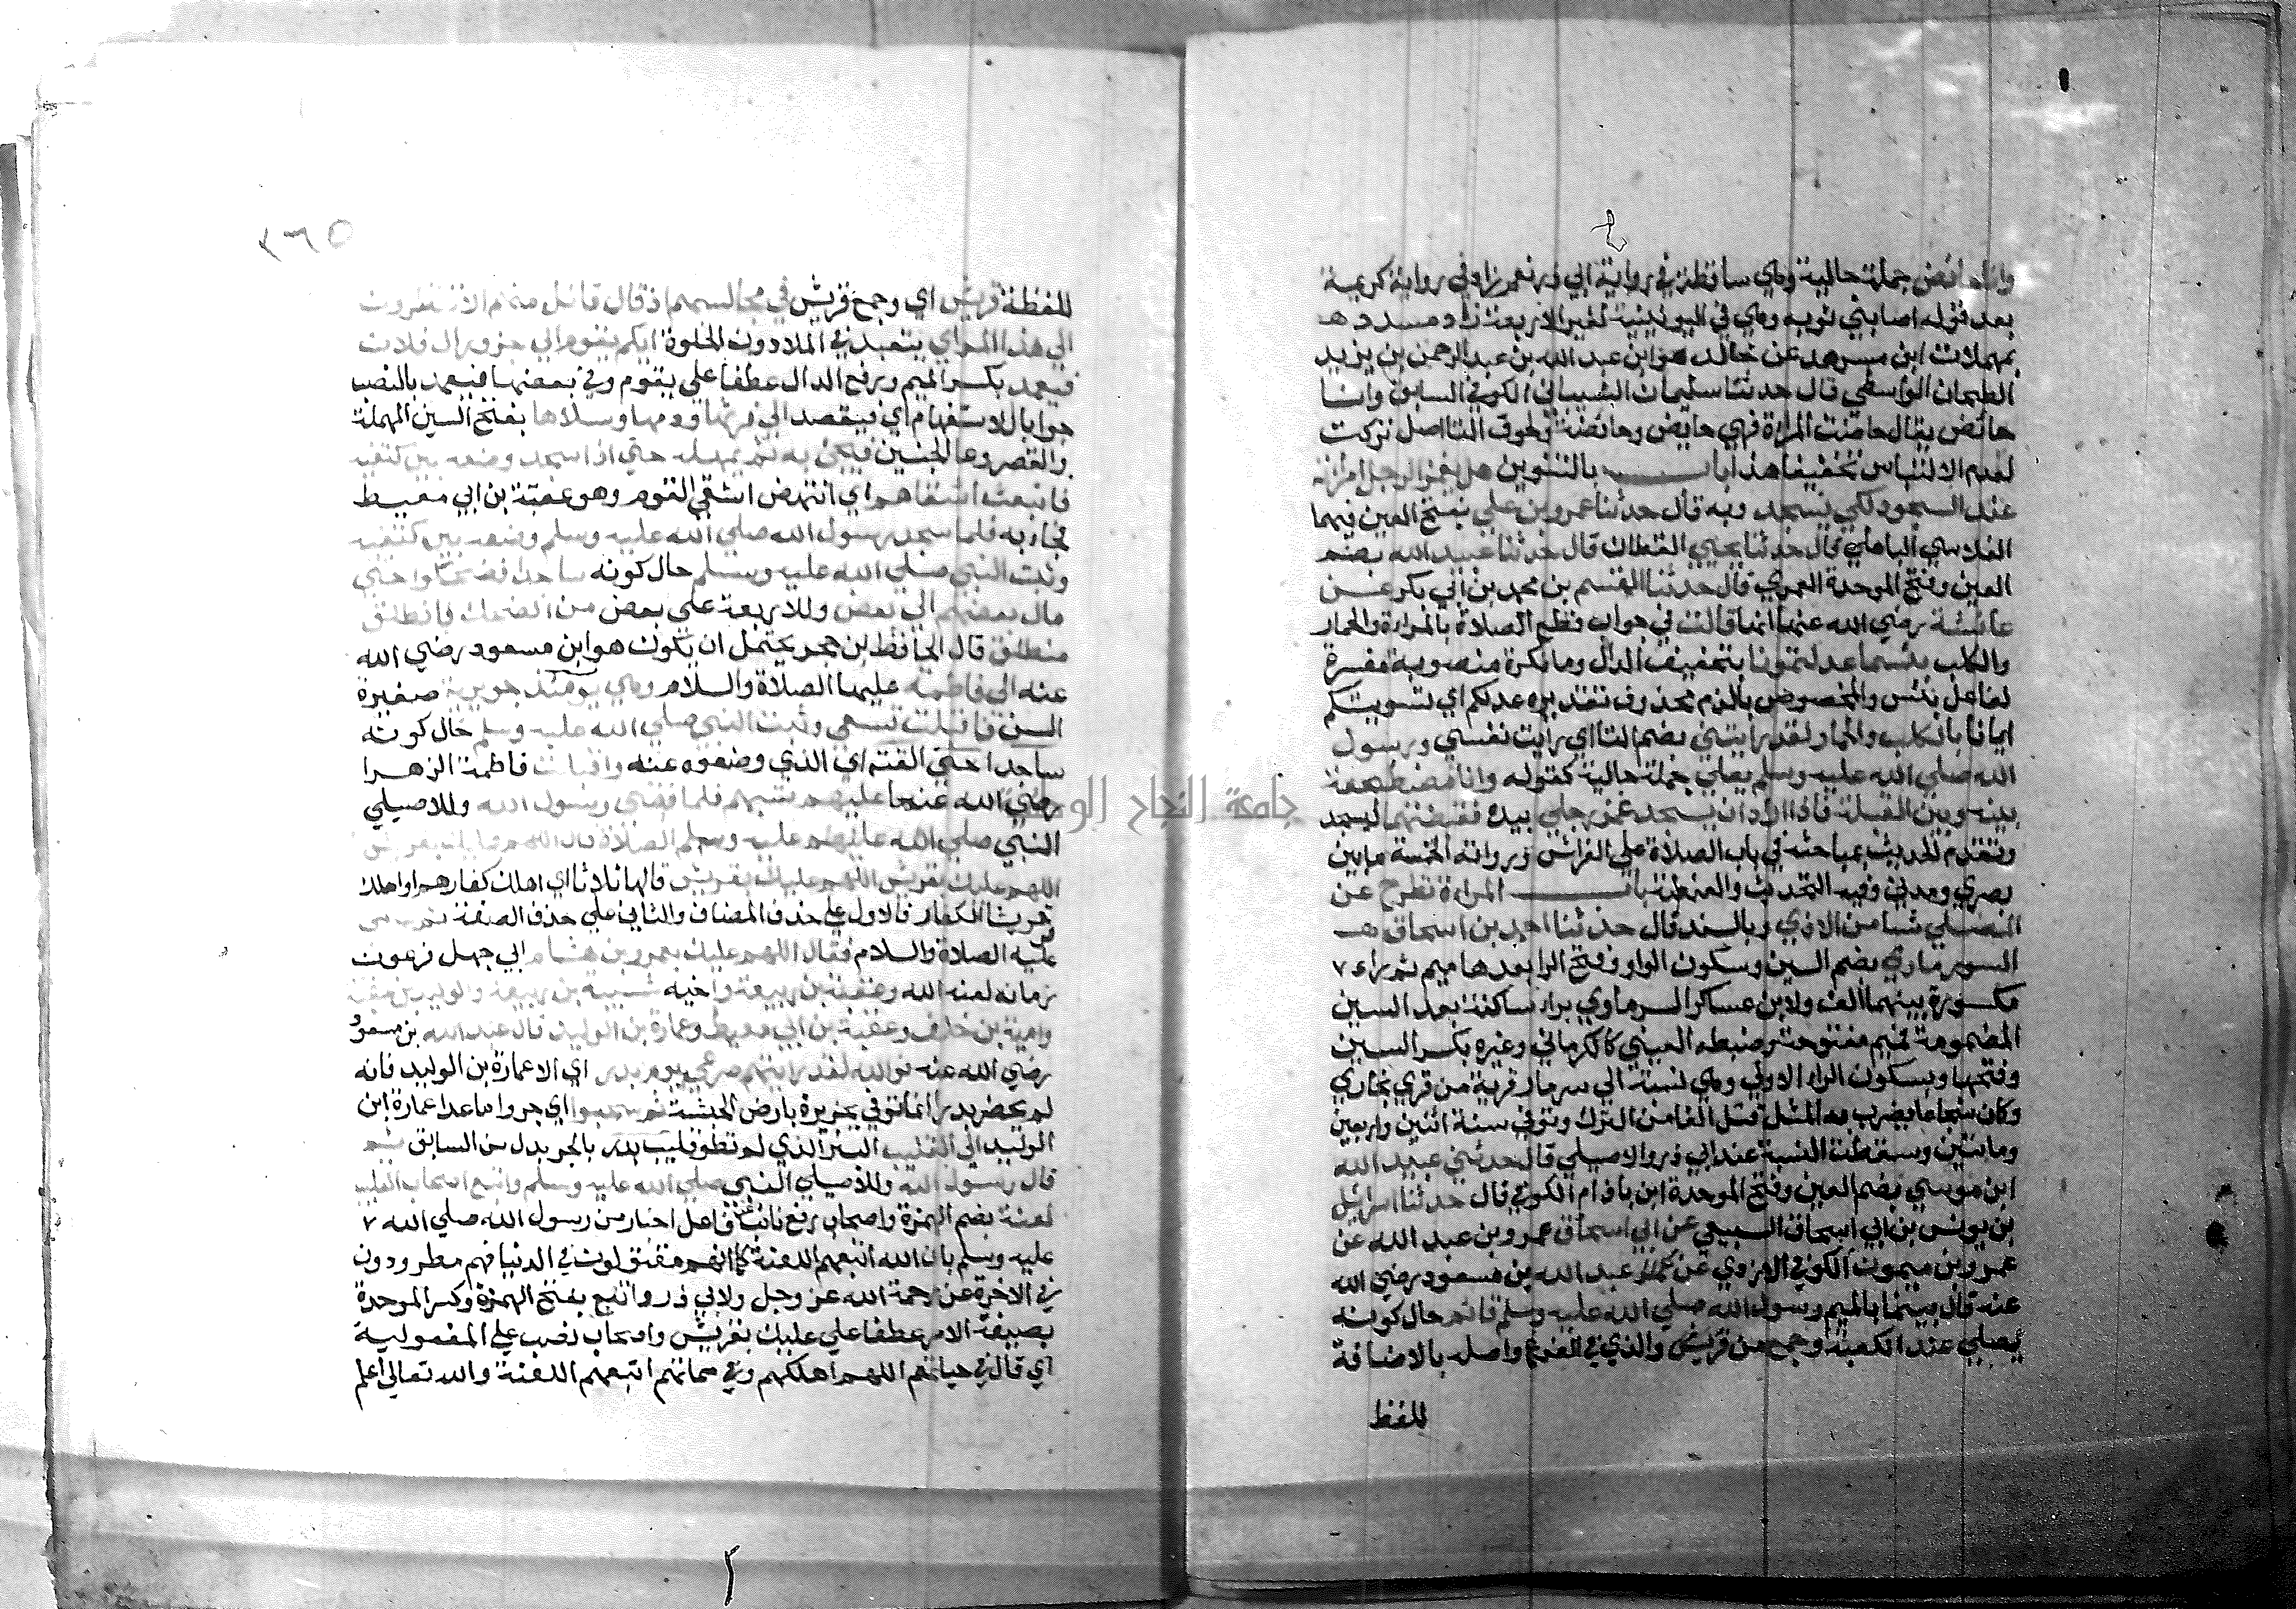 وانا حائض جملة حالية وهي ساقطة في رواية ابي ذر نعم زاد في رواية كريمة
بعد قوله اصابني ثوبه وهي في اليونينية لغير الاربعة زاد مسدد هـ
بمهملات ابن مسرهد عن خالد هو ابن عبد الله بن عبد الرحمن بن يزيد
الطحان الواسطي قال حدثنا سليمان الشيباني الكوفي السابق وانا
حائض يقال حاضت المراة فهي حايض وحائضة ولحوق التا اصل تركت
لعدم الالتباس تخفيفا هذا باب بالتنوين هل يغمز الرجل امراته
عند السجود لكي يسجد وبه قال حدثنا عمرو بن علي بفتح العين فيهما
الفلاس الباهلي قال حدثنا يحيي القطان قال حدثنا عبيد الله بضم
العين وفتح الموحدة العمري قال حدثنا القسم بن محمد بن ابي بكر عن
عائشة رضي الله عنها انها قالت في جواب قطع الصلاة بالمراة والحمار
والكلب بئسما عدلتمونا بتخفيف الدال وما نكرة منصوبة مفسرة
لفاعل بئس والمخصوص بالذم محذوف تقديره عدلكم اي تسويتكم
ايانا بالكلب والحمار لقد رايتني بضم التا اي رايت نفسي ورسول
الله صلي الله عليه وسلم يصلي جملة حالية كقوله وانا مضطجعة
بينه وبين القبلة فاذا اراد ان يسجد غمز رجلي بيده فقبضتهما ليسجد
وتقدم الحديث بمباحثه في باب الصلاة علي الفراش ورواته الخمسة ما بين
بصري ومدني وفيه التحديث والعنعنة باب المراة تطرح عن
المصلي شيا من الاذي وبالسند قال حدثنا احمد بن اسحاق هـ
السورماري بضم السين وسكون الواو وفتح الرا بعدها ميم ثم راء ٧
مكسورة بينهما الف ولابن عساكر السرماوي براء ساكنة بعد السين
المضمومة فميم مفتوحة وضبطه العيني كالكرماني وغيره بكسر السين
وفتحها وبسكون الراء الاولي وهي نسبة الي سرمار قرية من قري بخاري
وكان شجاعا يضرب به المثل قتل الفا من الترك وتوفي سنة اثنين واربعين
وماتتين وسقطت النسبة عند ابي ذر والاصيلي قال حدثني عبيد الله
ابن موسي بضم العين وفتح الموحدة ابن باذام الكوفي قال حدثنا اسرائيل
بن يونس بن ابي اسحاق السبيعي عن ابي اسحاق عمرو بن عبد الله عن
عمرو بن ميمون الكوفي الاودي عن عبد الله بن مسعود رضي الله
عنه قال بينما بالميم رسول الله صلي الله عليه وسلم قائم حال كونه
يصلي عند الكعبة وجمع من قريش والذي في الفرع واصله بالاضافة
للفظ
٣٦٥
للفظة قريش اي وجمع قريش في مجالسهم اذ قال قائل منهم الا تنظرون
الي هذا المراي يتعبد في الملا دون الخلوة ايكم يقوم الي جزور ال فلان
فيعمد بكسر الميم ورفع الدال عطفا علي يقوم وفي بعضها فيعمد بالنصب
جوابا للاستفهام اي فيقصد الي فرثها ودمها وسلاها بفتح السين المهملة
والقصر وعا الجنين فيجئ به ثم يمهله حتي اذا سجد وضعه بين كتفيه
فانبعث اشقاهم اي انتهض اشقي القوم وهو عقبة بن ابي معيط
فجاء به فلما سجد رسول الله صلي الله عليه وسلم وضعه بين كتفيه
وثبت النبي صلي الله عليه وسلم حال كونه ساجدا فضحكوا حتي
مال بعضهم الي بعض وللاربعة علي بعض من الضحك فانطلق
منطلق قال الحافظ ابن حجر يحتمل ان يكون هو ابن مسعود رضي الله
عنه الي فاطمة عليها الصلاة والسلام وهي يومئذ جويرية صغيرة
السن فاقبلت تسعي وثبت النبي صلي الله عليه وسلم حال كونه
ساجدا حتي القته اي الذي وضعوه عنه واقبلت فاطمة الزهرا
رضي الله عنها عليهم تسبهم فلما قضي رسول الله وللاصيلي
النبي صلي الله عليه وسلم الصلاة قال اللهم عليك بقريش
اللهم عليك بقريش اللهم عليك بقريش قالها ثلاثا اي اهلك كفارهم او اهلك
قريشا الكفار فالاول علي حذف المضاف والثاني علي حذف الصفة ثم سمي
عليه الصلاة والسلام فقال اللهم عليك بعمرو بن هشام ابي جهل فرعون
زمانه لعنه الله وعتبة بن ربيعة واخيه شيبة بن ربيعة والوليد بن عتبة
وامية بن خلف وعقبة بن ابي معيط وعمارة بن الوليد قال عبد الله بن مسعود
رضي الله عنه فوالله لقد رايتهم صرعي يوم بدر اي الا عمارة بن الوليد فانه
لم يحضر بدرا انما توفي بجزيرة بارض الحبشة ثم سحبوا اي جروا ما عدا عمارة ابن
الوليد الي القليب البئر الذي لم تطو قليب بدر بالجر بدل من السابق ثم
قال رسول الله وللاصيلي النبي صلي الله عليه وسلم واتبع اصحاب القليب
لعنة بضم الهمزة واصحاب رفع نائب فاعل اخبار من رسول الله صلي الله ٧
عليه وسلم بان الله اتبعهم اللعنة كما انهم مقتولون في الدنيا فهم مطرودون
في الاخرة عن رحمة الله عز وجل ولابي ذر واتبع بفتح الهمزة وكسر الموحدة
بصيغة الامر عطفا علي عليك بقريش واصحاب نصب علي المفعولية
اي قال في حياتهم اللهم اهلكهم وفي مماتهم اتبعهم اللعنة والله تعالي اعلم
جامعة النجاح